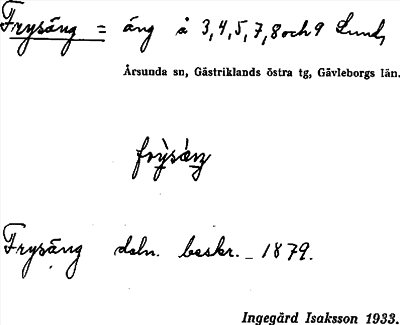 Frysäng = äng å 3,4,5,7,8 och 9 Lund,
Årsunda sn, Gästriklands östra tg, Gävleborgs län.
frỳsæ̀ŋ
Frysäng deln. beskr. – 1879.
Ingegärd Isaksson 1933.